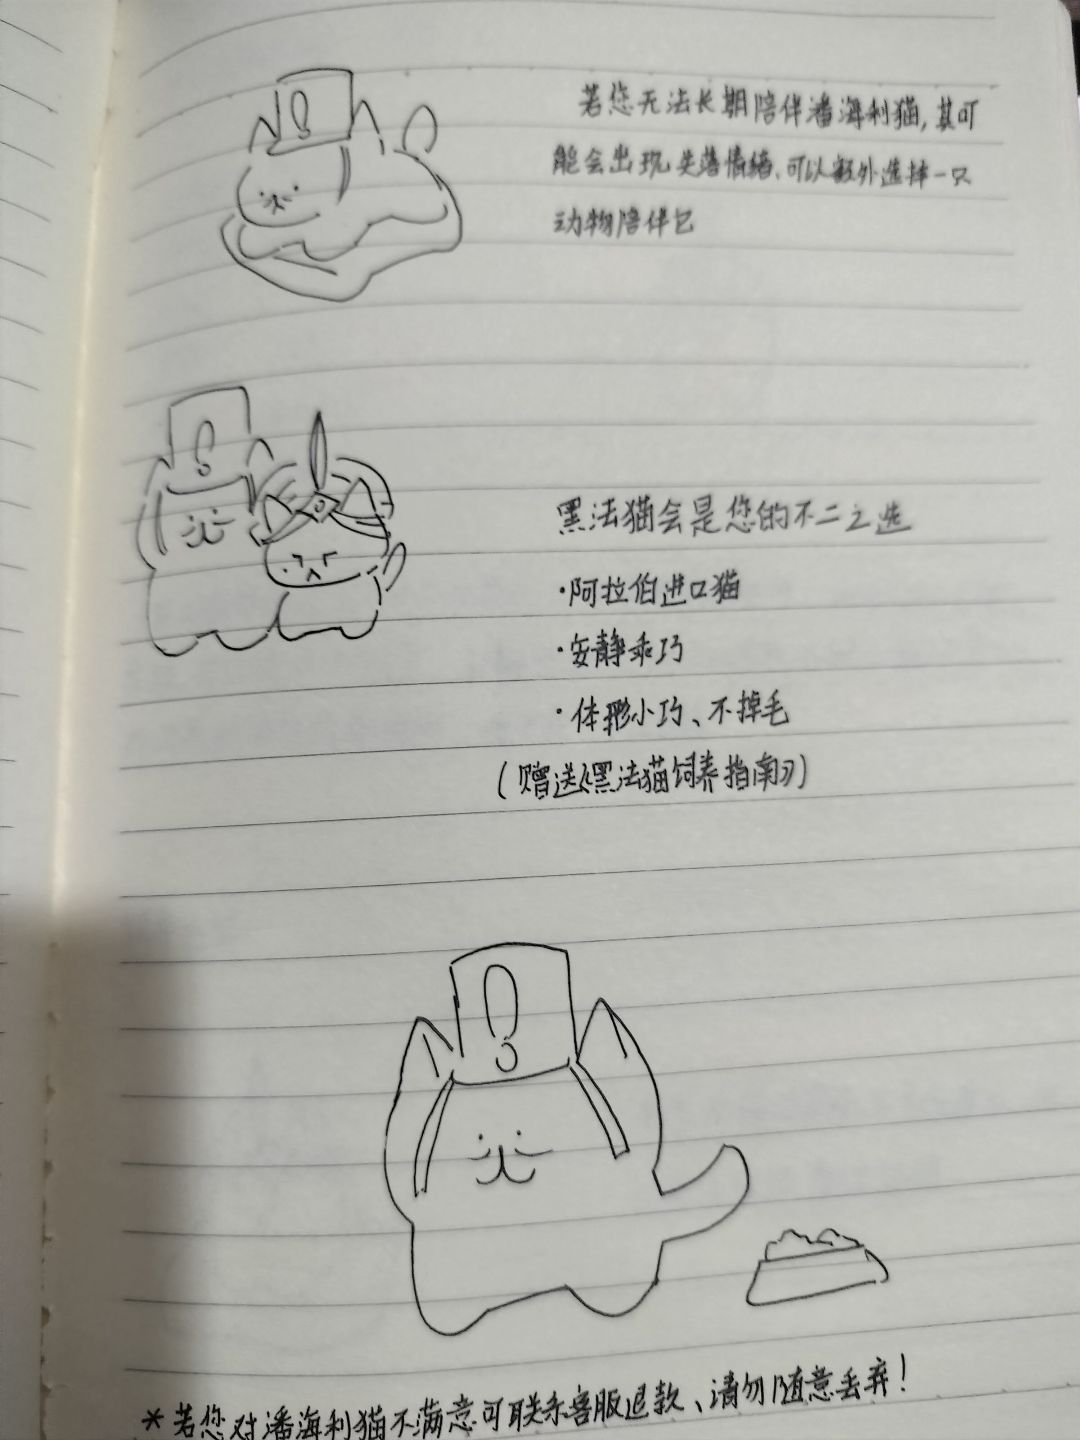 若您无法长期陪伴潘海利猫,其可
能会出现失落情绪,可以额外选择一只
动物陪伴它
黑法猫会是您的不二之选
·阿拉伯进口猫
·安静乖巧
·体形小巧、不掉毛
(赠送《黑法猫饲养指南》)
*若您对潘海利猫不满意可联系客服退款、请勿随意丢弃!